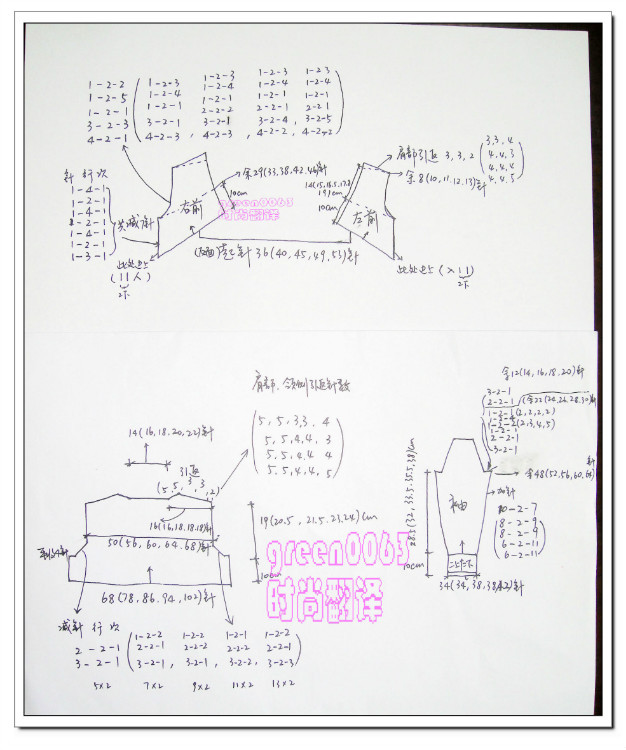 1-2-2 ( 1-2-3 1-2-3 1-2-3 1-2-3
1-2-5 1-2-4 1-2-4 1-2-4 1-2-4
1-2-1 1-2-1 1-2-1 1-2-1 1-2-1
3-2-3 3-2-1 2-2-2 2-2-1 2-2-1
4-2-1 4-2-3, 3-2-1 3-2-4, 3-2-5
4-2-3, 4-2-2, 4-2-2 )
针 行 次
1-4-1
1-2-1
1-4-1
2-2-1
1-4-1
1-2-1
1-3-1
共减 针
余29(33,38,42,46)针
10cm
右前
肩部引返 3,3,2
3,3,4
4,4,3
4,4,4
4,4,5
余8(10,11,12,13)针
10cm
左前
起针 36(40,45,49,53)针
(11人)
2下
2下
green0063
时尚翻译
肩部、领侧引返针数
14(16,18,20,22)针
引返
(5,5,3,3,2)
5,5,3,3,4
5,5,4,4,3
5,5,4,4,4
5,5,4,4,5
16(16,18,18,18)针
50(56,60,64,68)针
19(20.5,21.5,23,24)cm
10cm
68(78,86,94,102)针
green0063
时尚翻译
减针 行 次
2-2-1 ( 1-2-2 1-2-2 1-2-1 1-2-2
3-2-1 2-2-1 2-2-2 2-2-2 2-2-1
3-2-1, 3-2-1, 3-2-2, 3-2-3 )
5×2 7×2 9×2 11×2 13×2
余12(14,16,18,20)针
3-2-1
2-2-1 (余22(24,26,28,30)针
1-2-1 (2,2,2,2)
1-2-4 (2,3,4,5)
1-2-1
2-2-1
3-2-1
余48(52,56,60,64)针
袖
加针
10-2-7
8-2-9
8-2-9
6-2-11
6-2-11
28.5(32,33.5,35.5,38)cm
10cm
二上二下
34(34,38,38,42)针